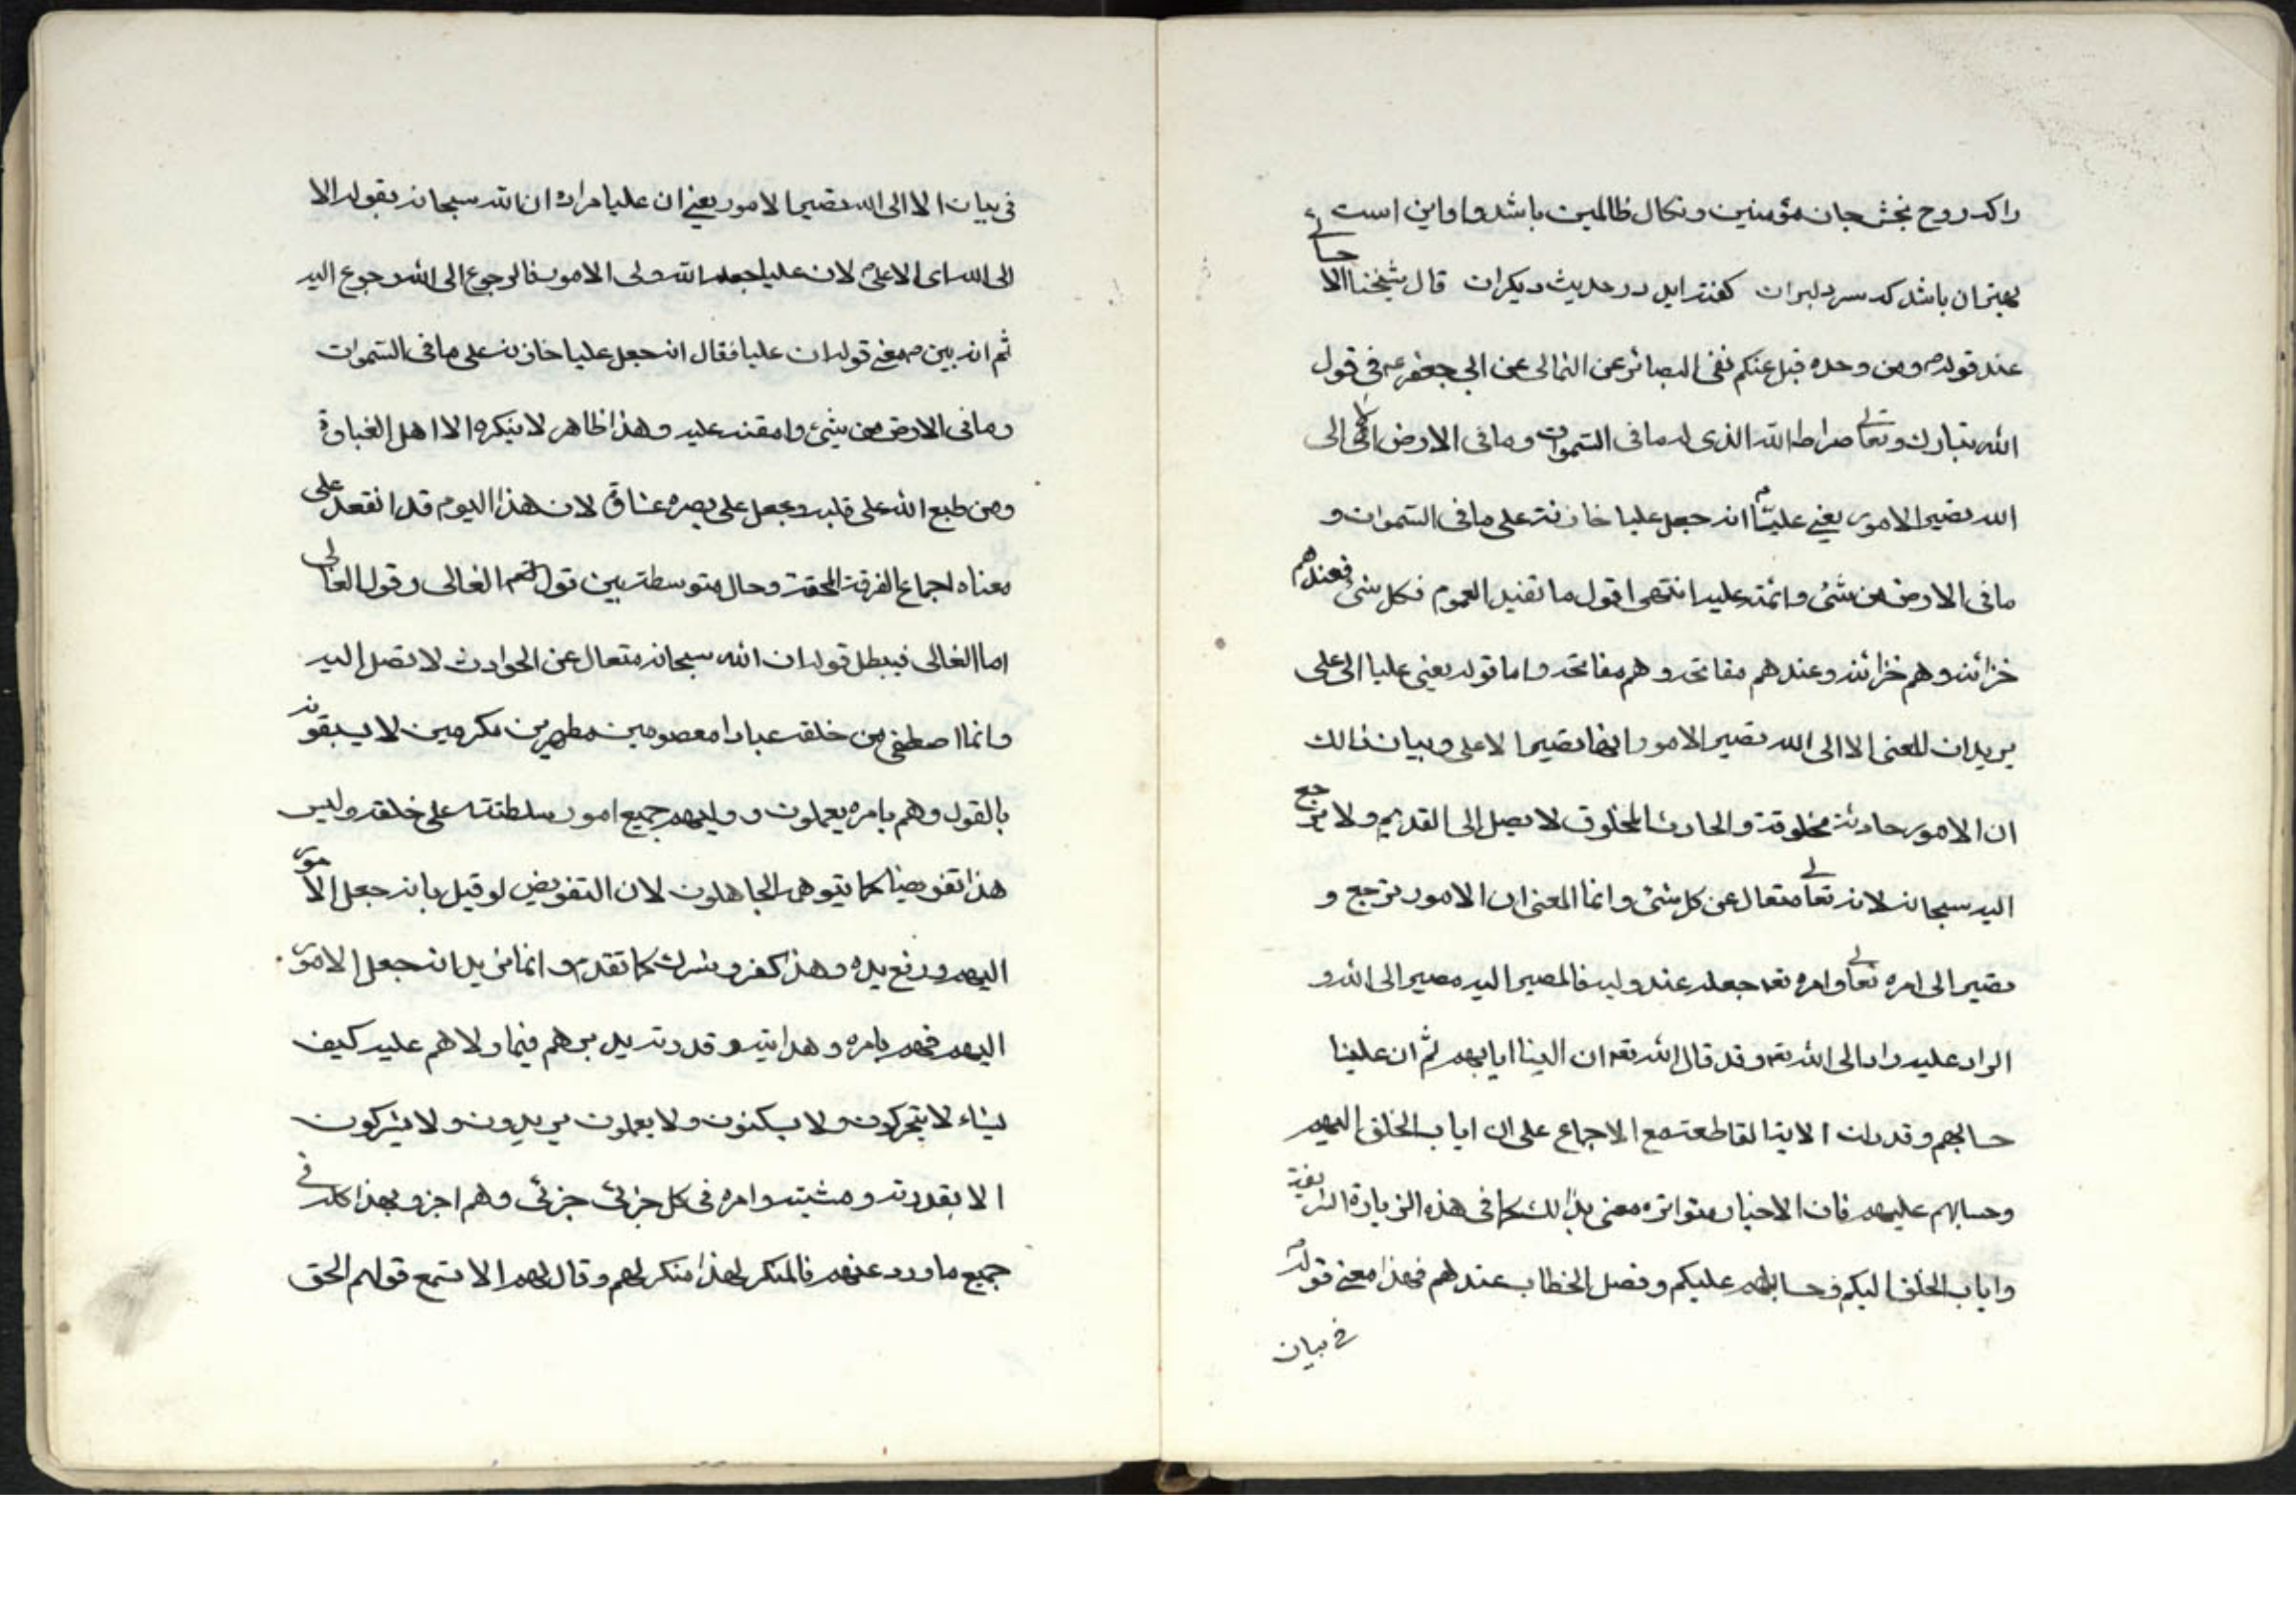 را که روح بخش جان مؤمنین و نکال ظالمین باشد و اواین است
بهتر ان باشد که سر دلبران گفته اید در حدیث دیگران قال شیخنا الاحسائی
عند قوله و من وحده قبل عنکم نفی البصائر عن الثمالی عن ابی جعفر ع فی قول
الله تبارک و تعالی صراط الله الذی له ما فی السموات و ما فی الارض الا الی
الله تصیر الامور یعنی علیا انه جعل علیا خازنه علی ما فی السموات و
ما فی الارض من شئ و ائمته علیه انتهی اقول ما تفید العموم فکل شئ فعندهم
خزائنه و هم خزائنه و عندهم مفاتحه و هم مفاتحه و اما قوله یعنی علیا الی علی
یرید ان المعنی الا الی الله تصیر الامور انها تصیر الا علی و بیان ذالک
ان الامور حادثة مخلوقة و الحادث المخلوق لا یصل الی القدیم و لا یرجع
الیه سبحانه لانه تعالی متعال عن کل شئ و انما المعنی ان الامور ترجع و
تصیر الی امره تعالی و امره تعه جعله عند ولیه فالمصیر الیه مصیر الی الله و
الراد علیه راد الی الله تعه و قد قال الله تعه ان الینا ایابهم ثم ان علینا
حسابهم و قد دلت الایة القاطعة مع الاجماع علی ان ایاب الخلق الیهم
و حسابهم علیهم فان الاخبار متواتره معنی بذالک کما فی هذه الزیارة الشریفة
و ایاب الخلق الیکم و حسابهم علیکم و فصل الخطاب عندکم فهذا معنی قوله
فی بیان
فی بیان الا الی الله تصیر الامور یعنی ان علیا مراده ان الله سبحانه بقوله الا
الی الله ای الا علی لان علیا جعله الله ولی الامور فالرجوع الی الله رجوع الیه
ثم انه بین معنی قوله ان علیا فقال انه جعل علیا خازنه علی ما فی السموات
و ما فی الارض من شئ و امقنه علیه و هذا ظاهر لا ینکره الا اهل الغباوة
و من طبع الله علی قلبه و جعل علی بصره غشاوة لان هذا الیوم قد انقعد علی
معناه اجماع الفرقة المحقة و حال متوسطة بین قول الغالی و قول القالی
اما الغالی فیبطل قوله ان الله سبحانه متعال عن الحوادث لا تصل الیه
و انما اصطفی من خلقه عبادا معصومین مطهرین مکرمین لا یسبقونه
بالقول و هم بامره یعملون و ولیهم جمیع امور سلطنته علی خلقه و لیس
هذا تفویضا کما یتوهمه الجاهلون لان التفویض لو قیل بانه جعل الامور
الیهم و رفع یده و هذا کفر و شرک کما تقدم و انما نرید انه جعل الامور
الیهم فهم بامره و هدایته و قدرته یدبرهم فیما ولاهم علیه کیف
یشاء لا یتحرکون و لا یسکنون و لا یعملون یریدون و لا یترکون
الا بقدرته و مشیته و امره فی کل جزئی جزئی و هم اخبروا بهذا کله فی
جمیع ما ورد عنهم فالمنکر لهذا منکر لهم و قال لهم الا تسمع قولهم الحق